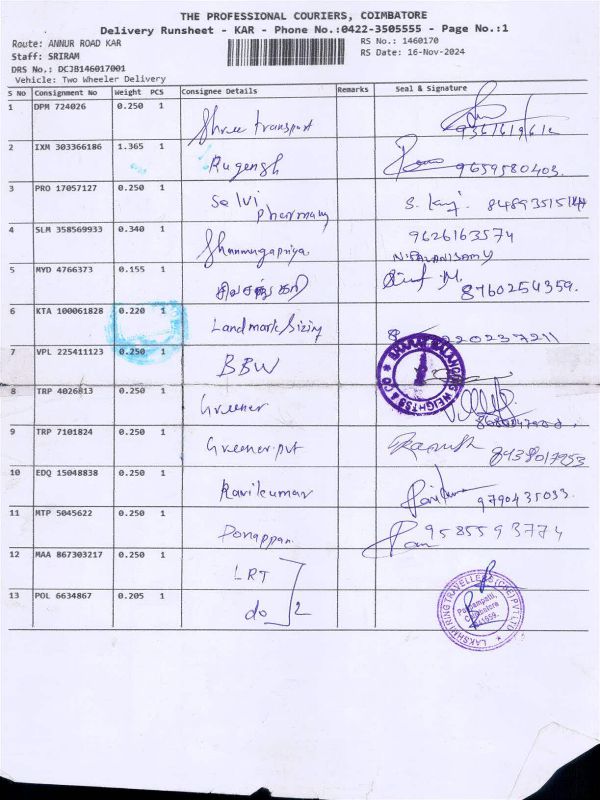 THE PROFESSIONAL COURIERS, COIMBATORE
Delivery Runsheet - KAR - Phone No.:0422-3505555 - Page No.:1
Route: ANNUR ROAD KAR
RS No.: 1460170
Staff: SRIRAM
RS Date: 16-Nov-2024
DRS No.: DCJB146017001
Vehicle: Two Wheeler Delivery
S No Consignment No Weight PCS Consignee Details Remarks Seal & Signature
1 DPM 724026 0.250 1 Shree transport
2 IXM 303366186 1.365 1 Rugensh 9659580403.
3 PRO 17057127 0.250 1 Selvi pharmacy
4 SLM 358569933 0.340 1 Shanmugapriya. 9626163574
N. PALANISAMY
5 MYD 4766373 0.155 1 8760254359.
6 KTA 100061828 0.220 1 Landmark Sizing
7 VPL 225411123 0.250 1 BBW
8 TRP 4026813 0.250 1 Greener
9 TRP 7101824 0.250 1 Greener pvt
10 EDQ 15048838 0.250 1 Ravikumar 9790435033.
11 MTP 5045622 0.250 1 Ponappan. 9585593774
12 MAA 867303217 0.250 1 LRT
13 POL 6634867 0.205 1 do 2